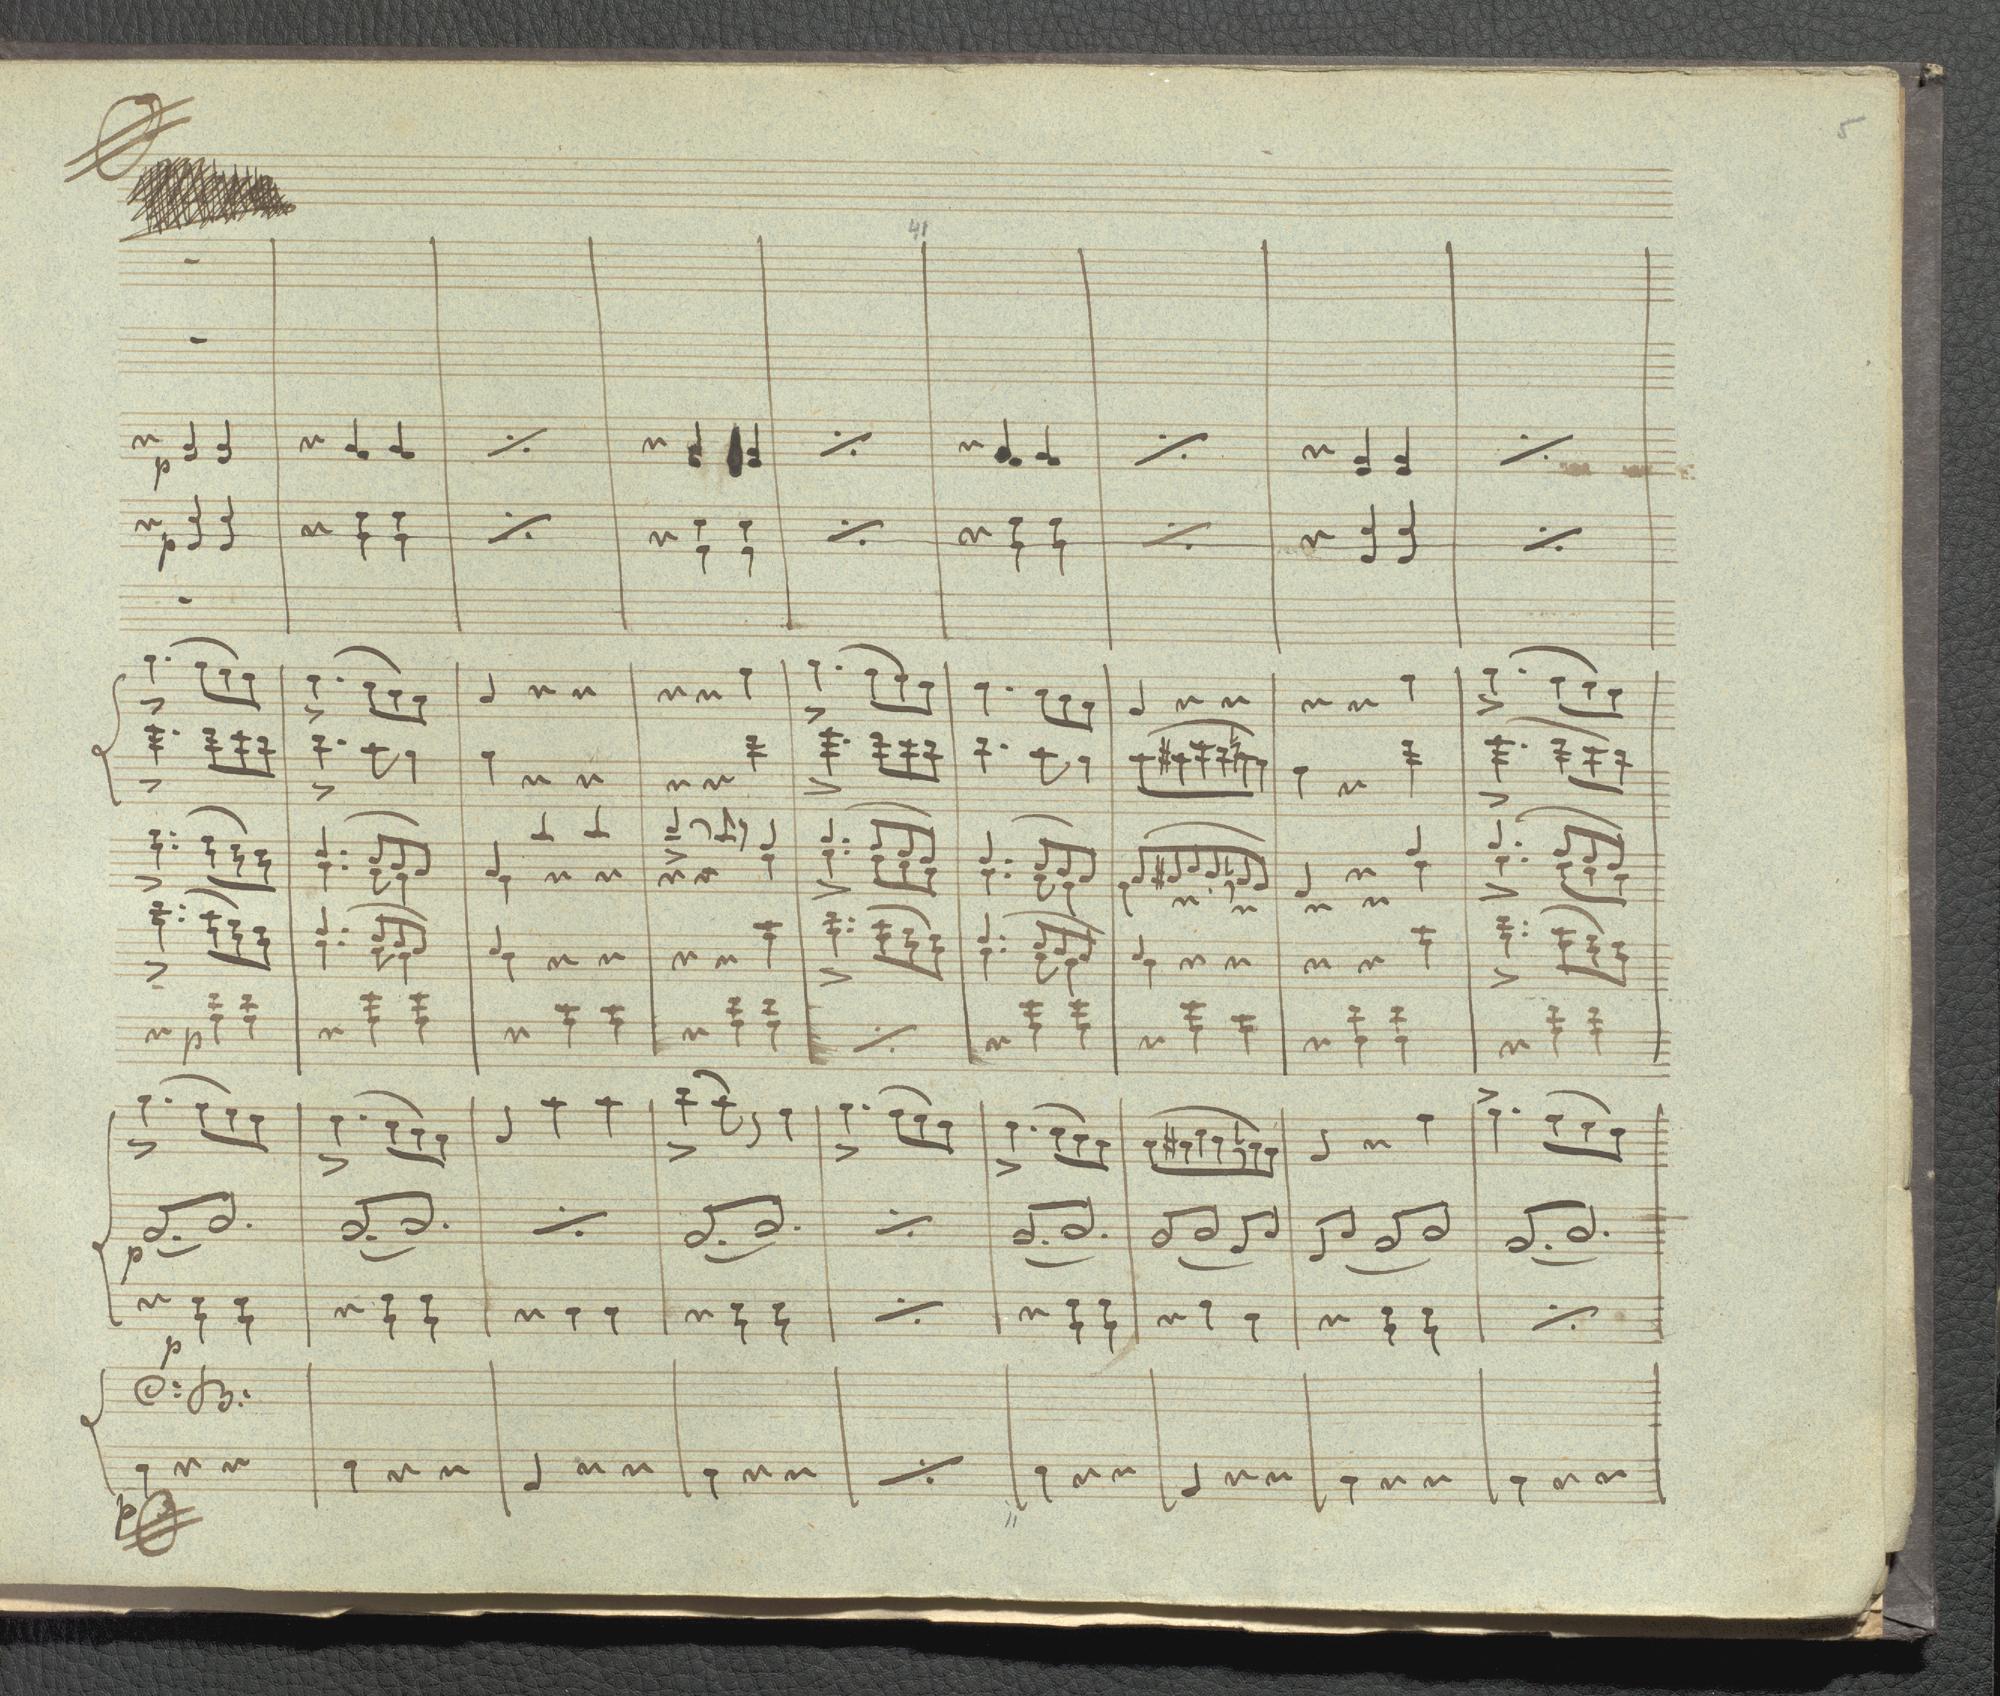 5
41
p
p
p
p
p
C: B:
p